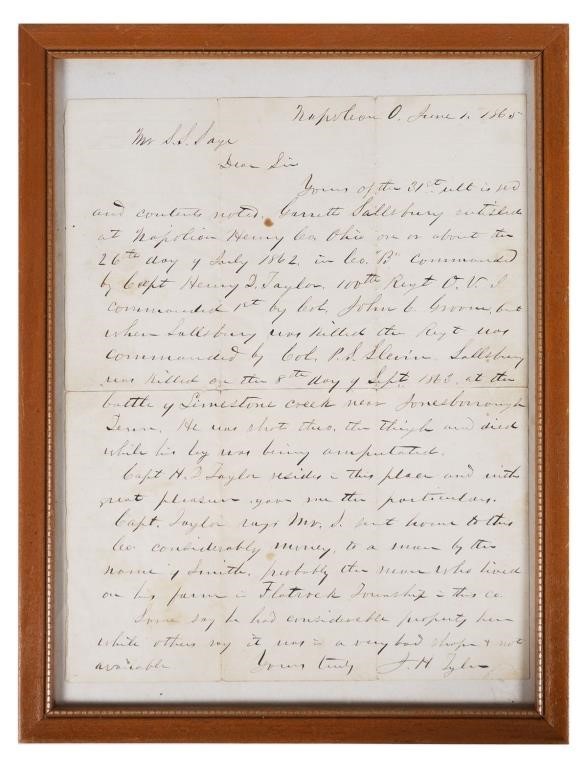 Napoleon O. June 1. 1865
Mr S. S. Sage
Dear Sir
Yours of the 31st ult is recd
and contents noted. Garrett Sallsbury enlisted
at Napoleon Henry Co. Ohio on or about the
26th day of July 1862. in Co. "B" commanded
by Capt Henry D. Taylor, 100th Regt O. V. I
commanded 1st by Col. John C. Groom, but
when Sallsbury was killed the Regt was
commanded by Col. P. S. Slevin. Sallsbury
was killed on the 8th day of Sept 1863. at the
battle of Limestone creek near Jonesborough
Tenn. He was shot thro. the thigh and died
while his leg was being amputated.
Capt H. D Taylor resides in this place and with
great pleasure gave me the particulars.
Capt. Taylor says Mr. S. sent home to this
Co. considerably money, to a man by the
name of Smith, probably the man who lived
on his farm in Flatrock Township in this co.
Some say he had considerable property here
while others say it was in a very bad shape & not
available Yours truly J. H. Tyler